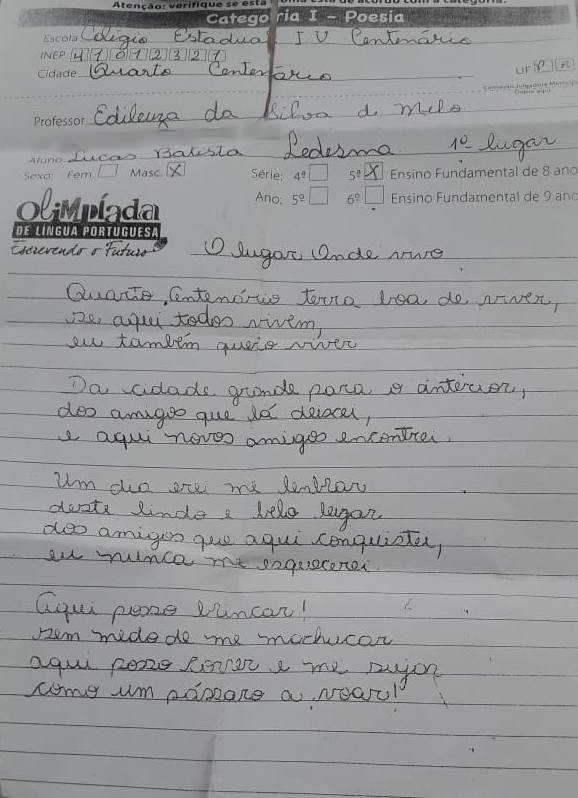 Atenção: verifique se está uma está de acordo com a categoria.
Categoria I - Poesia
Escola Colégio Estadual IV Centenário
INEP 41012327
Cidade Quarto Centenário UF PR
Professor Edileuza da Silva d Melo
Aluno Lucas Batista Ledesma 1º lugar
Sexo: Fem. Masc. X Série: 4ª 5ª X Ensino Fundamental de 8 ano
Ano: 5º 6º Ensino Fundamental de 9 ano
OLIMPíada
DE LÍNGUA PORTUGUESA
Escrevendo o Futuro
O lugar Onde vivo
Quarto Centenário terra boa de viver,
se aqui todos vivem,
eu também quero viver
Da cidade grande para o interior,
dos amigos que lá deixei,
e aqui novos amigos encontrei.
Um dia irei me lembrar
deste lindo e belo lugar
dos amigos que aqui conquistei,
eu nunca me esquecerei.
Aqui posso brincar!
sem medo de me machucar
aqui posso correr e me sujar
como um pássaro a voar!